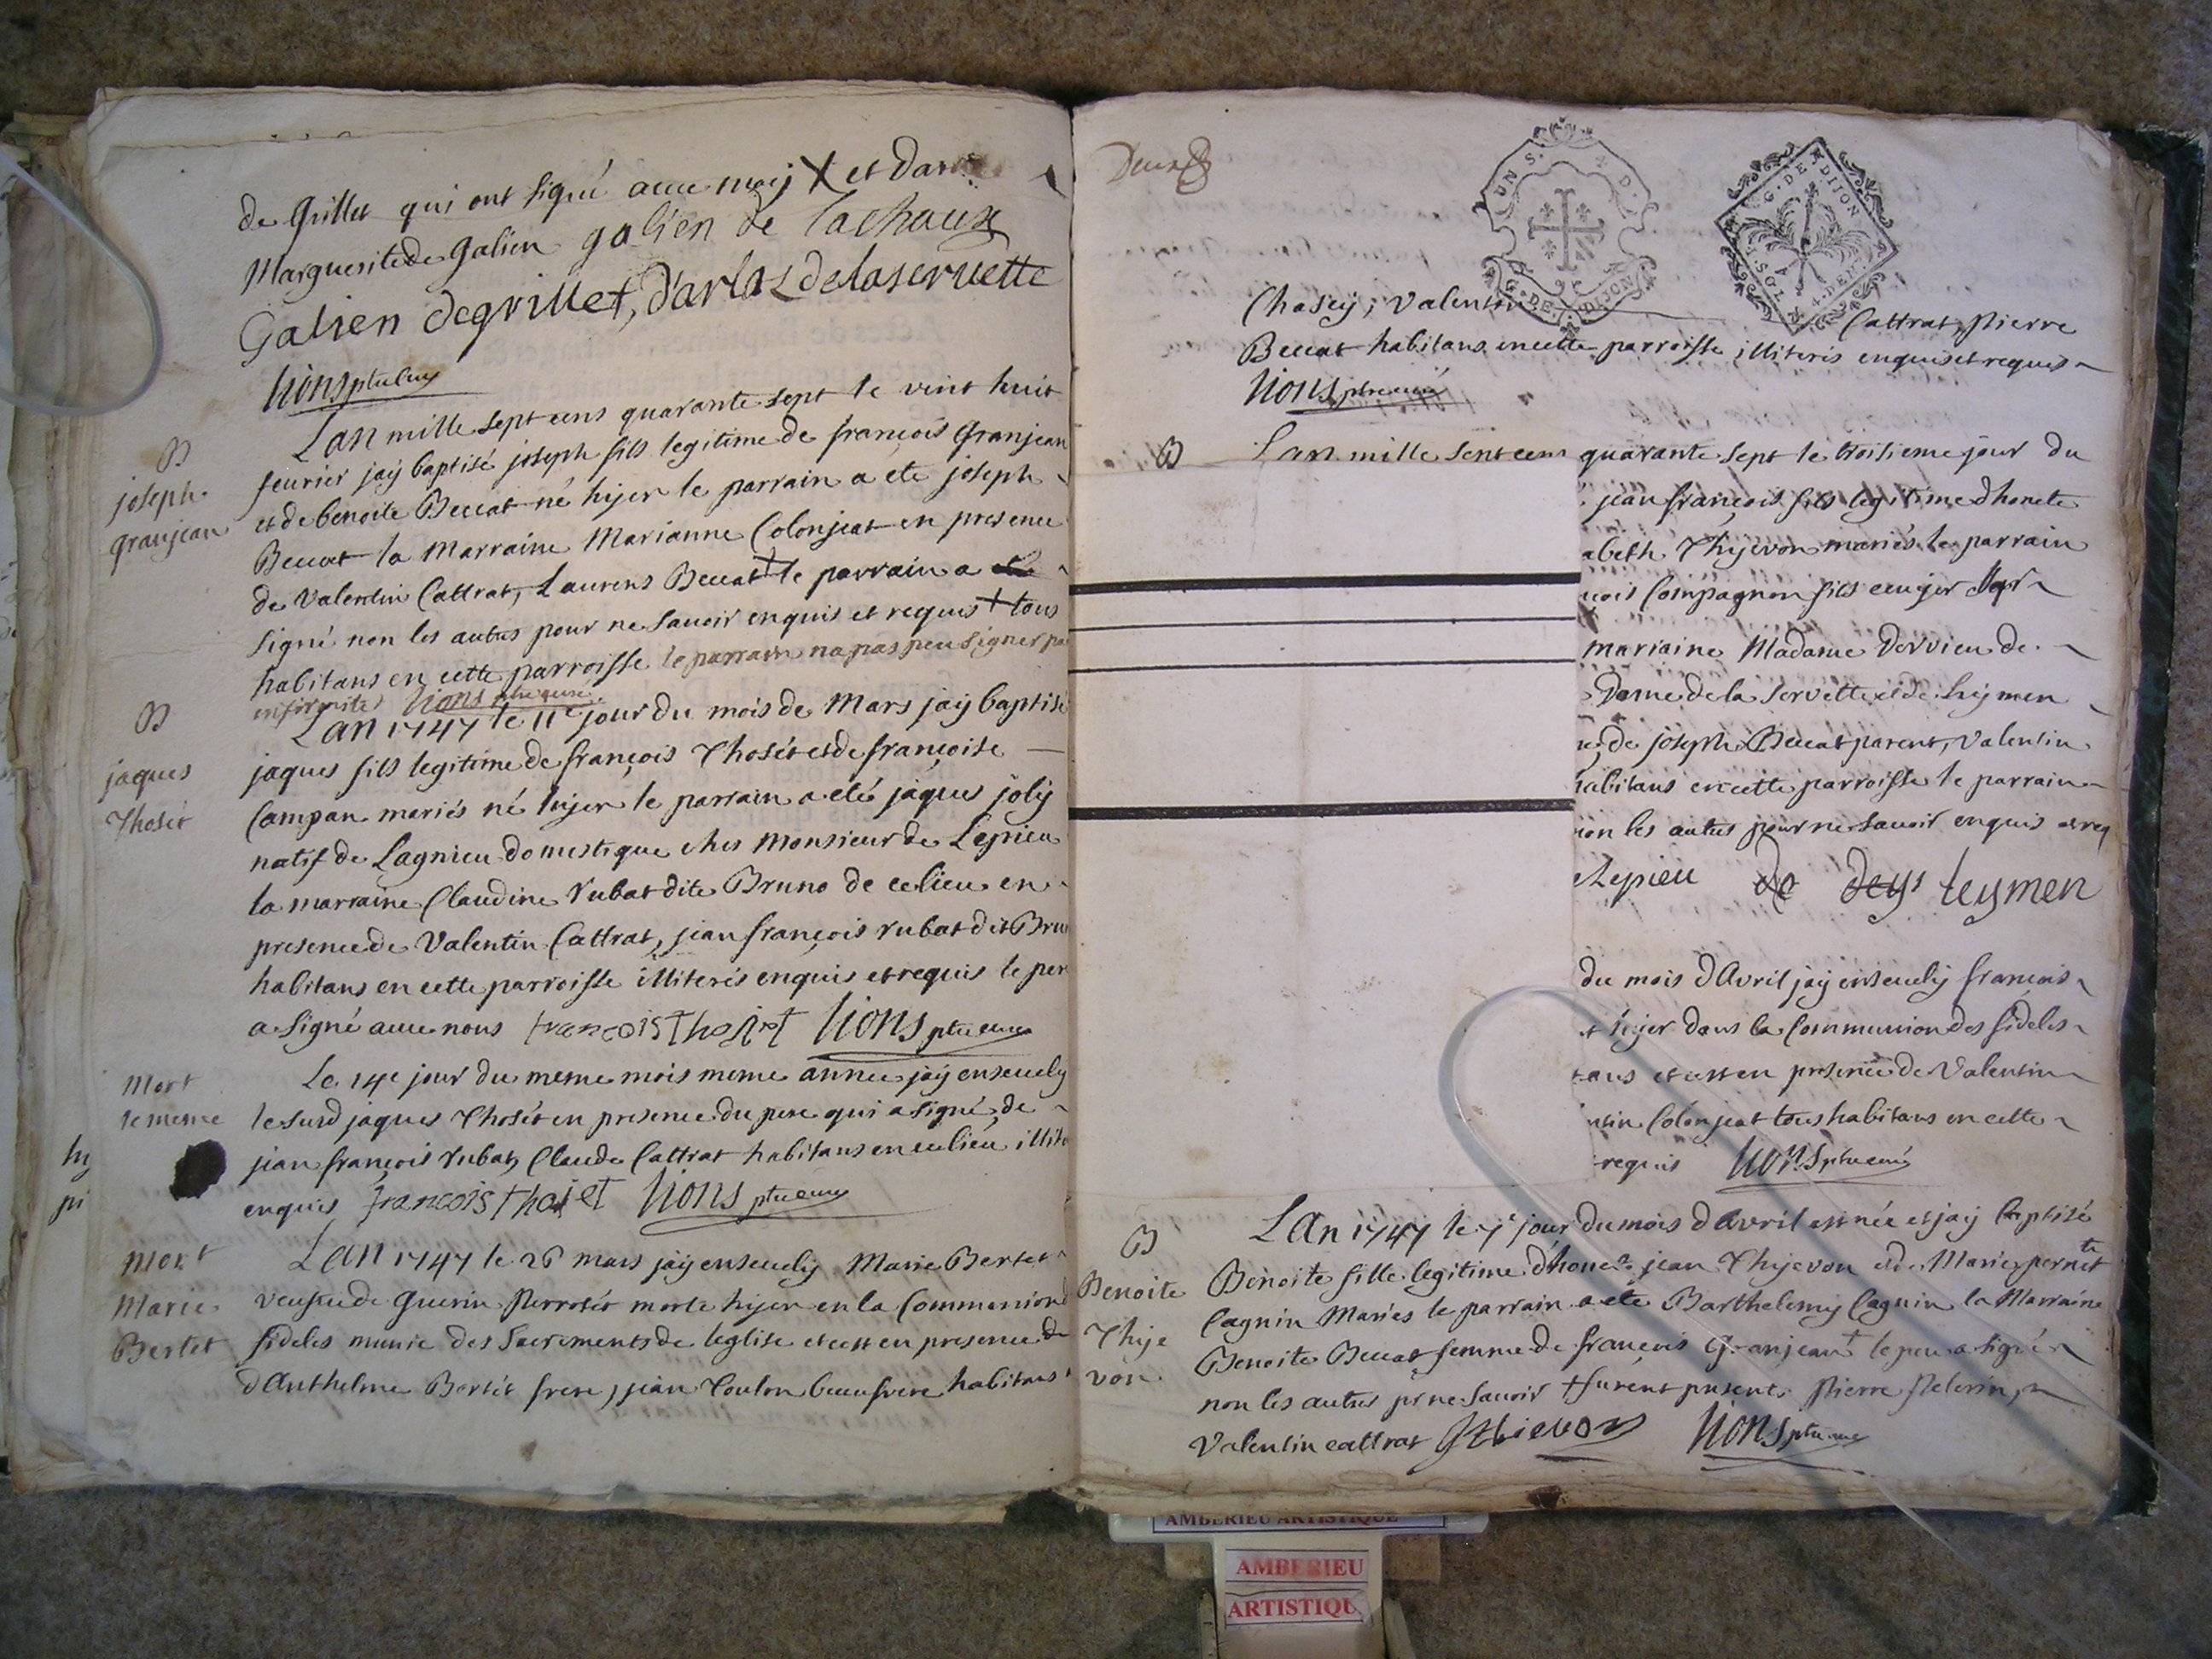 de Grillet qui ont signé avec moy X et Darl
Marguerite de Galien galien de lachaux
Galien degrillet, d'arloz delaservette
Lions ptre curé
B
joseph
granjean
Lan mille sept cens quarante sept le vint huit
feurier jay baptisé joseph fils legitime de françois Granjean
et de benoite Beccat né hyer le parrain a ete joseph
Beccat la Marraine Marianne Colonjeat en presence
de Valentin Cattrat, Laurens Beccat + le parrain a
signé non les autres pour ne sauoir enquis et requis + tous
habitans en cette parroisse le parrain na pas peu signer pa
infirmité Lions ptre curé
B
jaques
Thosét
Lan 1747 le 11e jour du mois de Mars jay baptisé
jaques fils legitime de françois Thosét et de françoise
Campan mariés né hyer le parrain a eté jaques joly
natif de Lagnieu domestique ches Monsieur de Lepieu
la marraine Claudine Rubat dite Bruno de ce lieu en
presence de Valentin Cattrat, jean françois rubat dit Bru
habitans en cette parroisse illiterés enquis et requis le per
a signé avec nous francois thoset Lions ptre curé
Mort
le meme
Le 14e jour du meme mois meme année jay enseuely
le susd jaques Thosét en presence du pere qui a signé, de
jean françois rubat, Claude Cattrat habitans en ce lieu illite
enquis francois thoset Lions ptre curé
hy
pi
Mort
Marie
Bertet
Lan 1747 le 26 mars jay enseuely Marie Bertet
veufue de Guerin Perrosét morte hyer en la Communion d
fideles munie des Sacrements de leglise et cest en presence de
d'Anthelme Bertét frere, jean Coulon beaufrere habitans
Deux
UN S. 4 D.
G. DE DIJON
G. DE DIJON
Chasey, Valentin Cattrat, Pierre
Beccat habitans en cette parroisse illiterés enquis et requis
Lions ptre curé
B
Lan mille sept cens quarante sept le troisieme jour du
jean françois fils legitime dhonete
abeth Thyevon mariés le parrain
cois Compagnon fils
marraine Madame Dervieu de
Dame de la Servette et de Leymen
de joseph Beccat parent, Valentin
habitans en cette parroisse le parrain
non les autres pour ne sauoir enquis et req
Lepieu de leymen
du mois dAvril jay enseuely françois
hyer dans la Communion des fideles
tans et cest en presence de Valentin
ntin Colonjeat tous habitans en cette
requis Lions ptre curé
B
Benoite
Thye
von
Lan 1747 le 7e jour du mois dAvril est née et jay baptisé
Benoite fille legitime dhone.te jean Thyevon et de Marie pernette
Cagnin Mariés le parrain a ete Barthelemy Cagnin la Marraine
Benoite Beccat femme de françois Granjean + le pere a signé
non les autres pr ne sauoir + furent presents Pierre Pelerin,
Valentin cattrat Gthievon Lions ptre curé
AMBERIEU ARTISTIQUE
AMBERIEU
ARTISTIQU